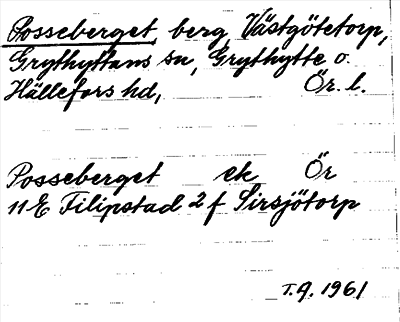 Posseberget berg, Västgötetorp,
Grythyttans sn, Grythytte o.
Hällefors hd, Ör. l.
Posseberget ek Ör
11E Filipstad 2f Sirsjötorp
T.A. 1961